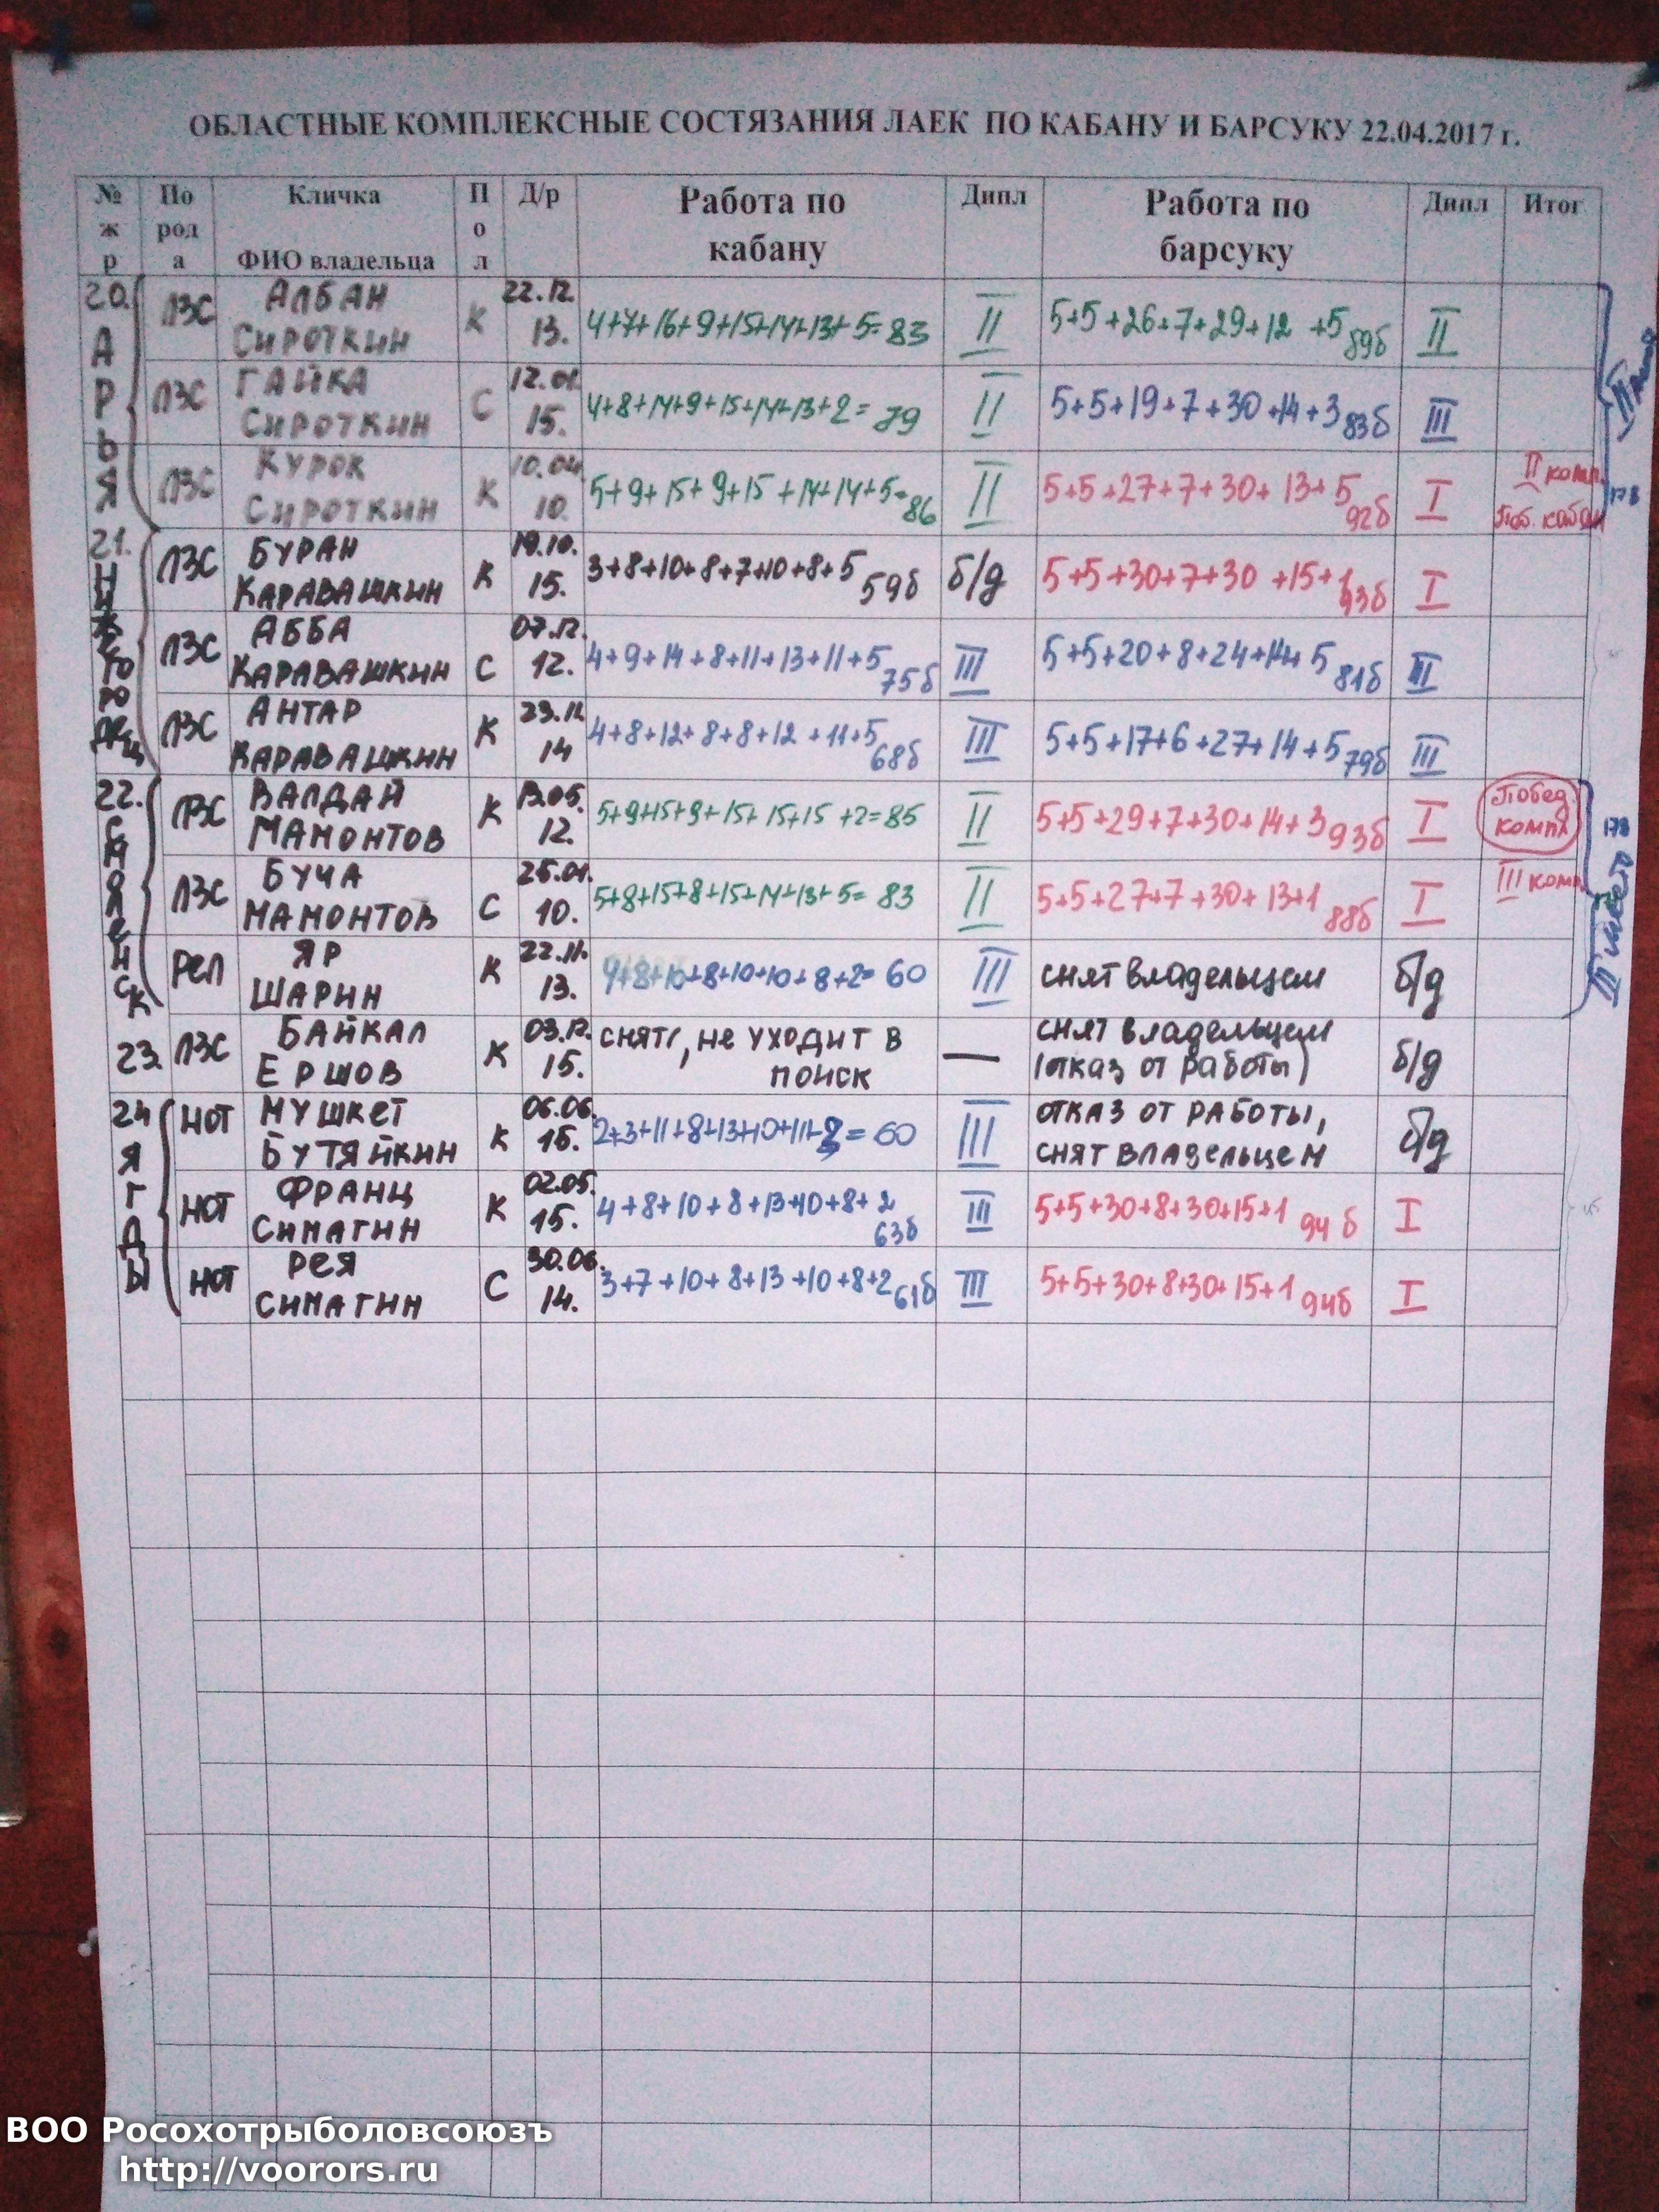 ОБЛАСТНЫЕ КОМПЛЕКСНЫЕ СОСТЯЗАНИЯ ЛАЕК ПО КАБАНУ И БАРСУКУ 22.04.2017 г.
№ жр Порода Кличка ФИО владельца Пол Д/р Работа по кабану Дипл Работа по барсуку Дипл Итог
20. АРЬЯ
ЛЗС АЛБАН СИРОТКИН К 22.12.13. 4+7+16+9+15+14+13+5=83 II 5+5+26+7+29+12+5 89б II
ЛЗС ГАЙКА СИРОТКИН С 12.01.15. 4+8+14+9+15+14+13+2=79 II 5+5+19+7+30+14+3 83б III
ЛЗС КУРОК СИРОТКИН К 10.04.10. 5+9+15+9+15+14+14+5=86 II 5+5+27+7+30+13+5 92б I II комп. Поб. кабан
21.
ЛЗС БУРАН КАРАВАШКИН К 19.10.15. 3+8+10+8+7+10+8+5 59б б/д 5+5+30+7+30+15+1 93б I
ЛЗС АББА КАРАВАШКИН С 07.12.12. 4+9+14+8+11+13+11+5 75б III 5+5+20+8+24+14+5 81б III
ЛЗС АНТАР КАРАВАШКИН К 23.11.14 4+8+12+8+8+12+11+5 68б III 5+5+17+6+27+14+5 79б III
22.
ЛЗС ВАЛДАЙ МАМОНТОВ К 13.05.12. 5+9+15+9+15+15+15+2=85 II 5+5+29+7+30+14+3 93б I Побед. компл
ЛЗС БУЧА МАМОНТОВ С 25.01.10. 5+8+15+8+15+14+13+5=83 II 5+5+27+7+30+13+1 88б I III комп.
РЕЛ ЯР ШАРИН К 22.11.13. 4+8+10+8+10+10+8+2=60 III снят владельцем б/д
23. ЛЗС БАЙКАЛ ЕРШОВ К 03.12.15. СНЯТ, НЕ УХОДИТ В ПОИСК — снят владельцем (отказ от работы) б/д
24 ЯГДЫ
НОТ МУШКЕТ БУТЯЙКИН К 06.06.15. 2+3+11+8+13+10+11+2=60 III ОТКАЗ ОТ РАБОТЫ, СНЯТ ВЛАДЕЛЬЦЕМ б/д
НОТ ФРАНЦ СИМАГИН К 02.05.15. 4+8+10+8+13+10+8+2 63б III 5+5+30+8+30+15+1 94б I
НОТ РЕЯ СИМАГИН С 30.06.14. 3+7+10+8+13+10+8+2 61б III 5+5+30+8+30+15+1 94б I
178
178
место
ВОО Росохотрыболовсоюзъ
http://voorors.ru